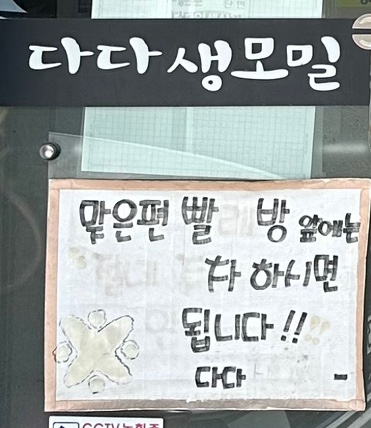 다다 생모밀
맞은편 빨 방 앞에는
차 하시면
됩니다!!
다다 -
CCTV녹화중